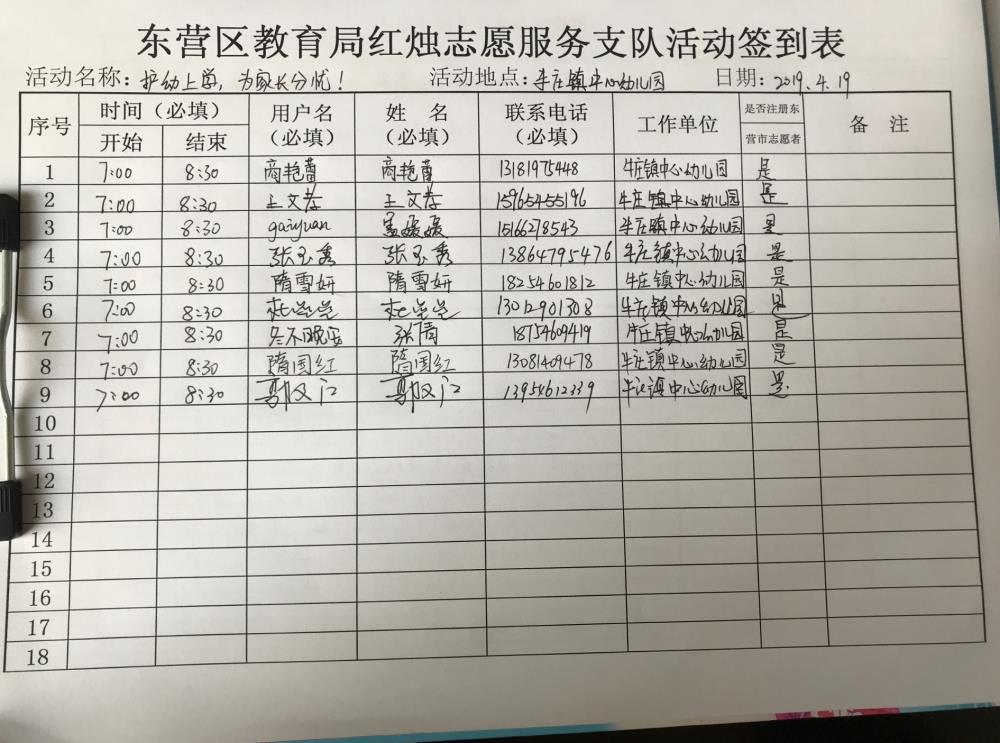 东营区教育局红烛志愿服务支队活动签到表
活动名称：护幼上学，为家长分忧！ 活动地点：牛庄镇中心幼儿园 日期：2019.4.19
序号 时间（必填） 用户名（必填） 姓 名（必填） 联系电话（必填） 工作单位 是否注册东营市志愿者 备 注
开始 结束
1 7:00 8:30 商艳蕾 商艳蕾 13181975448 牛庄镇中心幼儿园 是
2 7:00 8:30 王文孝 王文孝 15965455196 牛庄镇中心幼儿园 是
3 7:00 8:30 gaiyuan 孟媛媛 15166278543 牛庄镇中心幼儿园 是
4 7:00 8:30 张玉秀 张玉秀 13864795476 牛庄镇中心幼儿园 是
5 7:00 8:30 隋雪妍 隋雪妍 18254601812 牛庄镇中心幼儿园 是
6 7:00 8:30 13012901308 牛庄镇中心幼儿园 是
7 7:00 8:30 冬不晚安 张倩 18754609419 牛庄镇中心幼儿园 是
8 7:00 8:30 隋国红 隋国红 13081409478 牛庄镇中心幼儿园 是
9 7:00 8:30 13954612339 牛庄镇中心幼儿园 是
10
11
12
13
14
15
16
17
18